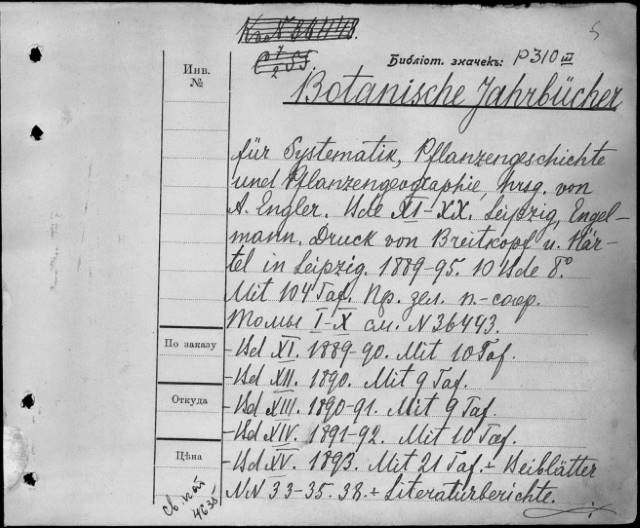 5
Библіот. значекъ: P310 III
Инв.
№
Botanische Jahrbücher
für Systematik, Pflanzengeschichte
und Pflanzengeographie, hrsg. von
A. Engler. Bde XI-XX. Leipzig, Engel-
mann. Druck von Breitkopf u. Här-
tel in Leipzig. 1889-95. 10 Bde 8°.
Mit 104 Taf. Пр. зел. п.-сафр.
Томы I-X см. N 36443.
По заказу
Bd XI. 1889-90. Mit 10 Taf.
Bd XII. 1890. Mit 9 Taf.
Откуда
Bd XIII. 1890-91. Mit 9 Taf.
Bd XIV. 1891-92. Mit 10 Taf.
Цѣна
Bd XV. 1893. Mit 21 Taf. + Beiblätter
NN 33-35. 38. + Literaturberichte.